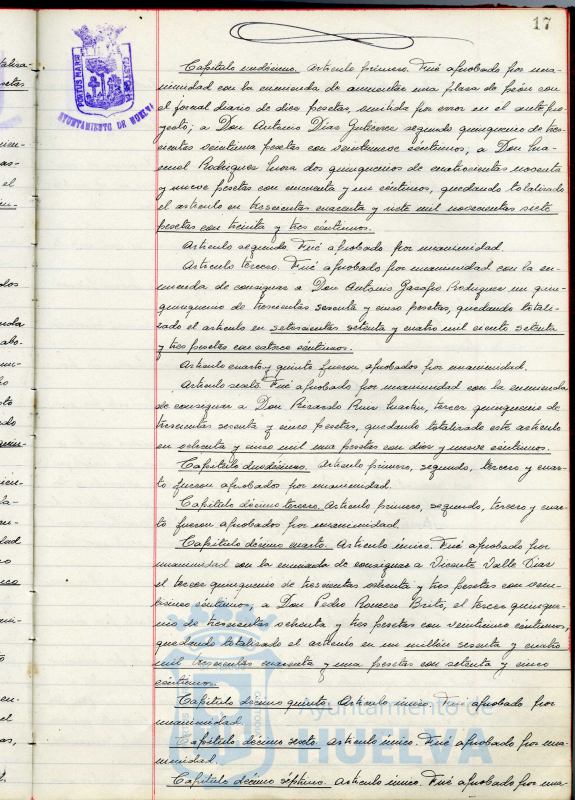 17
Capítulo undécimo. Artículo primero. Fué aprobado por una-
nimidad con la enmienda de aumentar una plaza de Peón con
el jornal diario de diez pesetas, omitida por error en el antepro-
yecto; a Don Antonio Días Gutierrez segundo quinquenio de tres-
cientas veintiuna pesetas con veintinueve céntimos, a Don Ma-
nuel Rodríguez dos quinquenios de cuatrocientas noventa
y nueve pesetas con cincuenta y un céntimos, quedando totalizado
el artículo en trescientas cuarenta y siete mil novecientas siete
pesetas con treinta y tres céntimos.
Artículo segundo. Fué aprobado por unanimidad.
Artículo tercero. Fué aprobado por unanimidad con la en-
mienda de consignar a Don Antonio Garafeo Rodríguez un quin-
quenio de trescientas sesenta y cinco pesetas, quedando totali-
zado el artículo en setecientas setenta y cuatro mil ciento setenta
y tres pesetas con catorce céntimos.
Artículo cuarto y quinto fueron aprobados por unanimidad.
Artículo sexto. Fué aprobado por unanimidad con la enmienda
de consignar a Don Ricardo Ruiz Martín, tercer quinquenio de
trescientas sesenta y cinco pesetas, quedando totalizado este artículo
en ochenta y cinco mil una pesetas con diez y nueve céntimos.
Capítulo duodécimo. Artículo primero, segundo, tercero y cuar-
to fueron aprobados por unanimidad.
Capítulo décimo tercero. Artículo primero, segundo, tercero y cuar-
to fueron aprobados por unanimidad.
Capítulo décimo cuarto. Artículo único. Fué aprobado por
unanimidad con la enmienda de consignar a Vicente Valle Días
el tercer quinquenio de trescientas ochenta y tres pesetas con vein-
ticinco céntimos, a Don Pedro Romero Brito, el tercer quinque-
nio de trescientas ochenta y tres pesetas con veinticinco céntimos,
quedando totalizado el artículo en un millón sesenta y cuatro
mil trescientas cuarenta y una pesetas con setenta y cinco
céntimos.
Capítulo décimo quinto. Artículo único. Fué aprobado por
unanimidad.
Capítulo décimo sexto. Artículo único. Fué aprobado por una-
nimidad.
Capítulo décimo séptimo. Artículo único. Fué aprobado por una-
PORTUS MARIS
CUSTODIA
AYUNTAMIENTO DE HUELVA
Ayuntamiento de
HUELVA